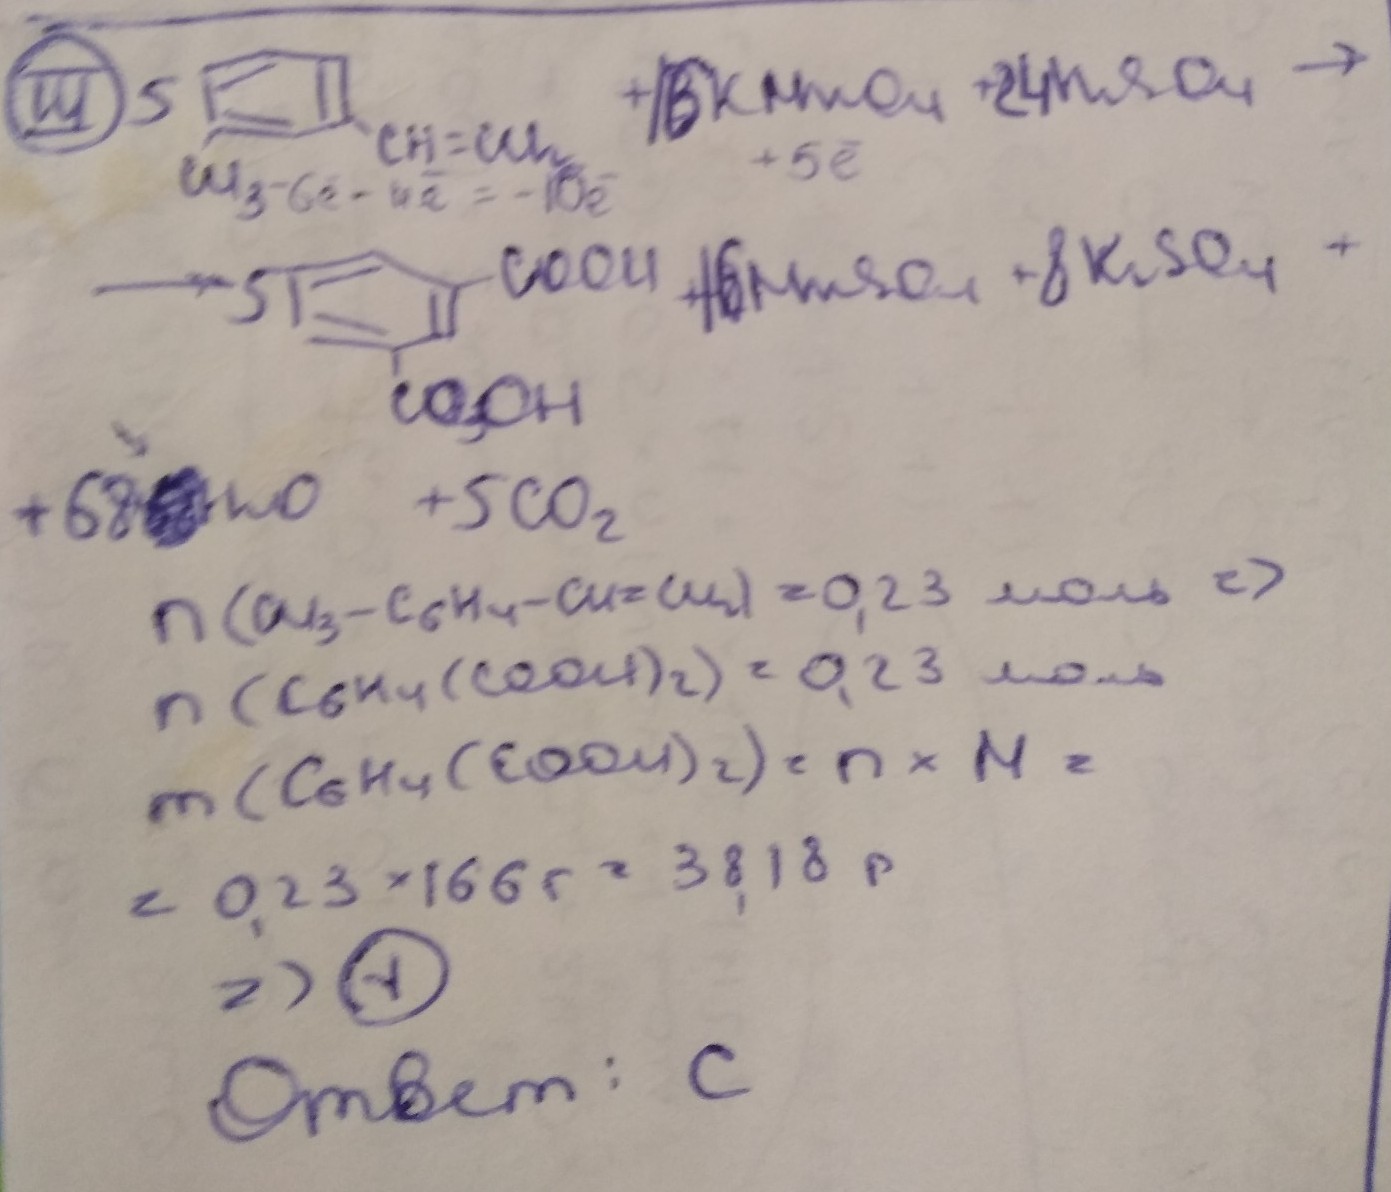 III 5 CH=CH₂ +16KMnO₄ +24H₂SO₄ →
CH₃ -6ē -4ē = -10ē +5ē
→ 5 COOH +16MnSO₄ +8K₂SO₄ +
COOH
+68 H₂O +5CO₂
n(CH₃-C₆H₄-CH=CH₂) = 0,23 моль =>
n(C₆H₄(COOH)₂) = 0,23 моль
m(C₆H₄(COOH)₂) = n × M =
= 0,23 × 166г = 38,18 г
=> +
Ответ: C